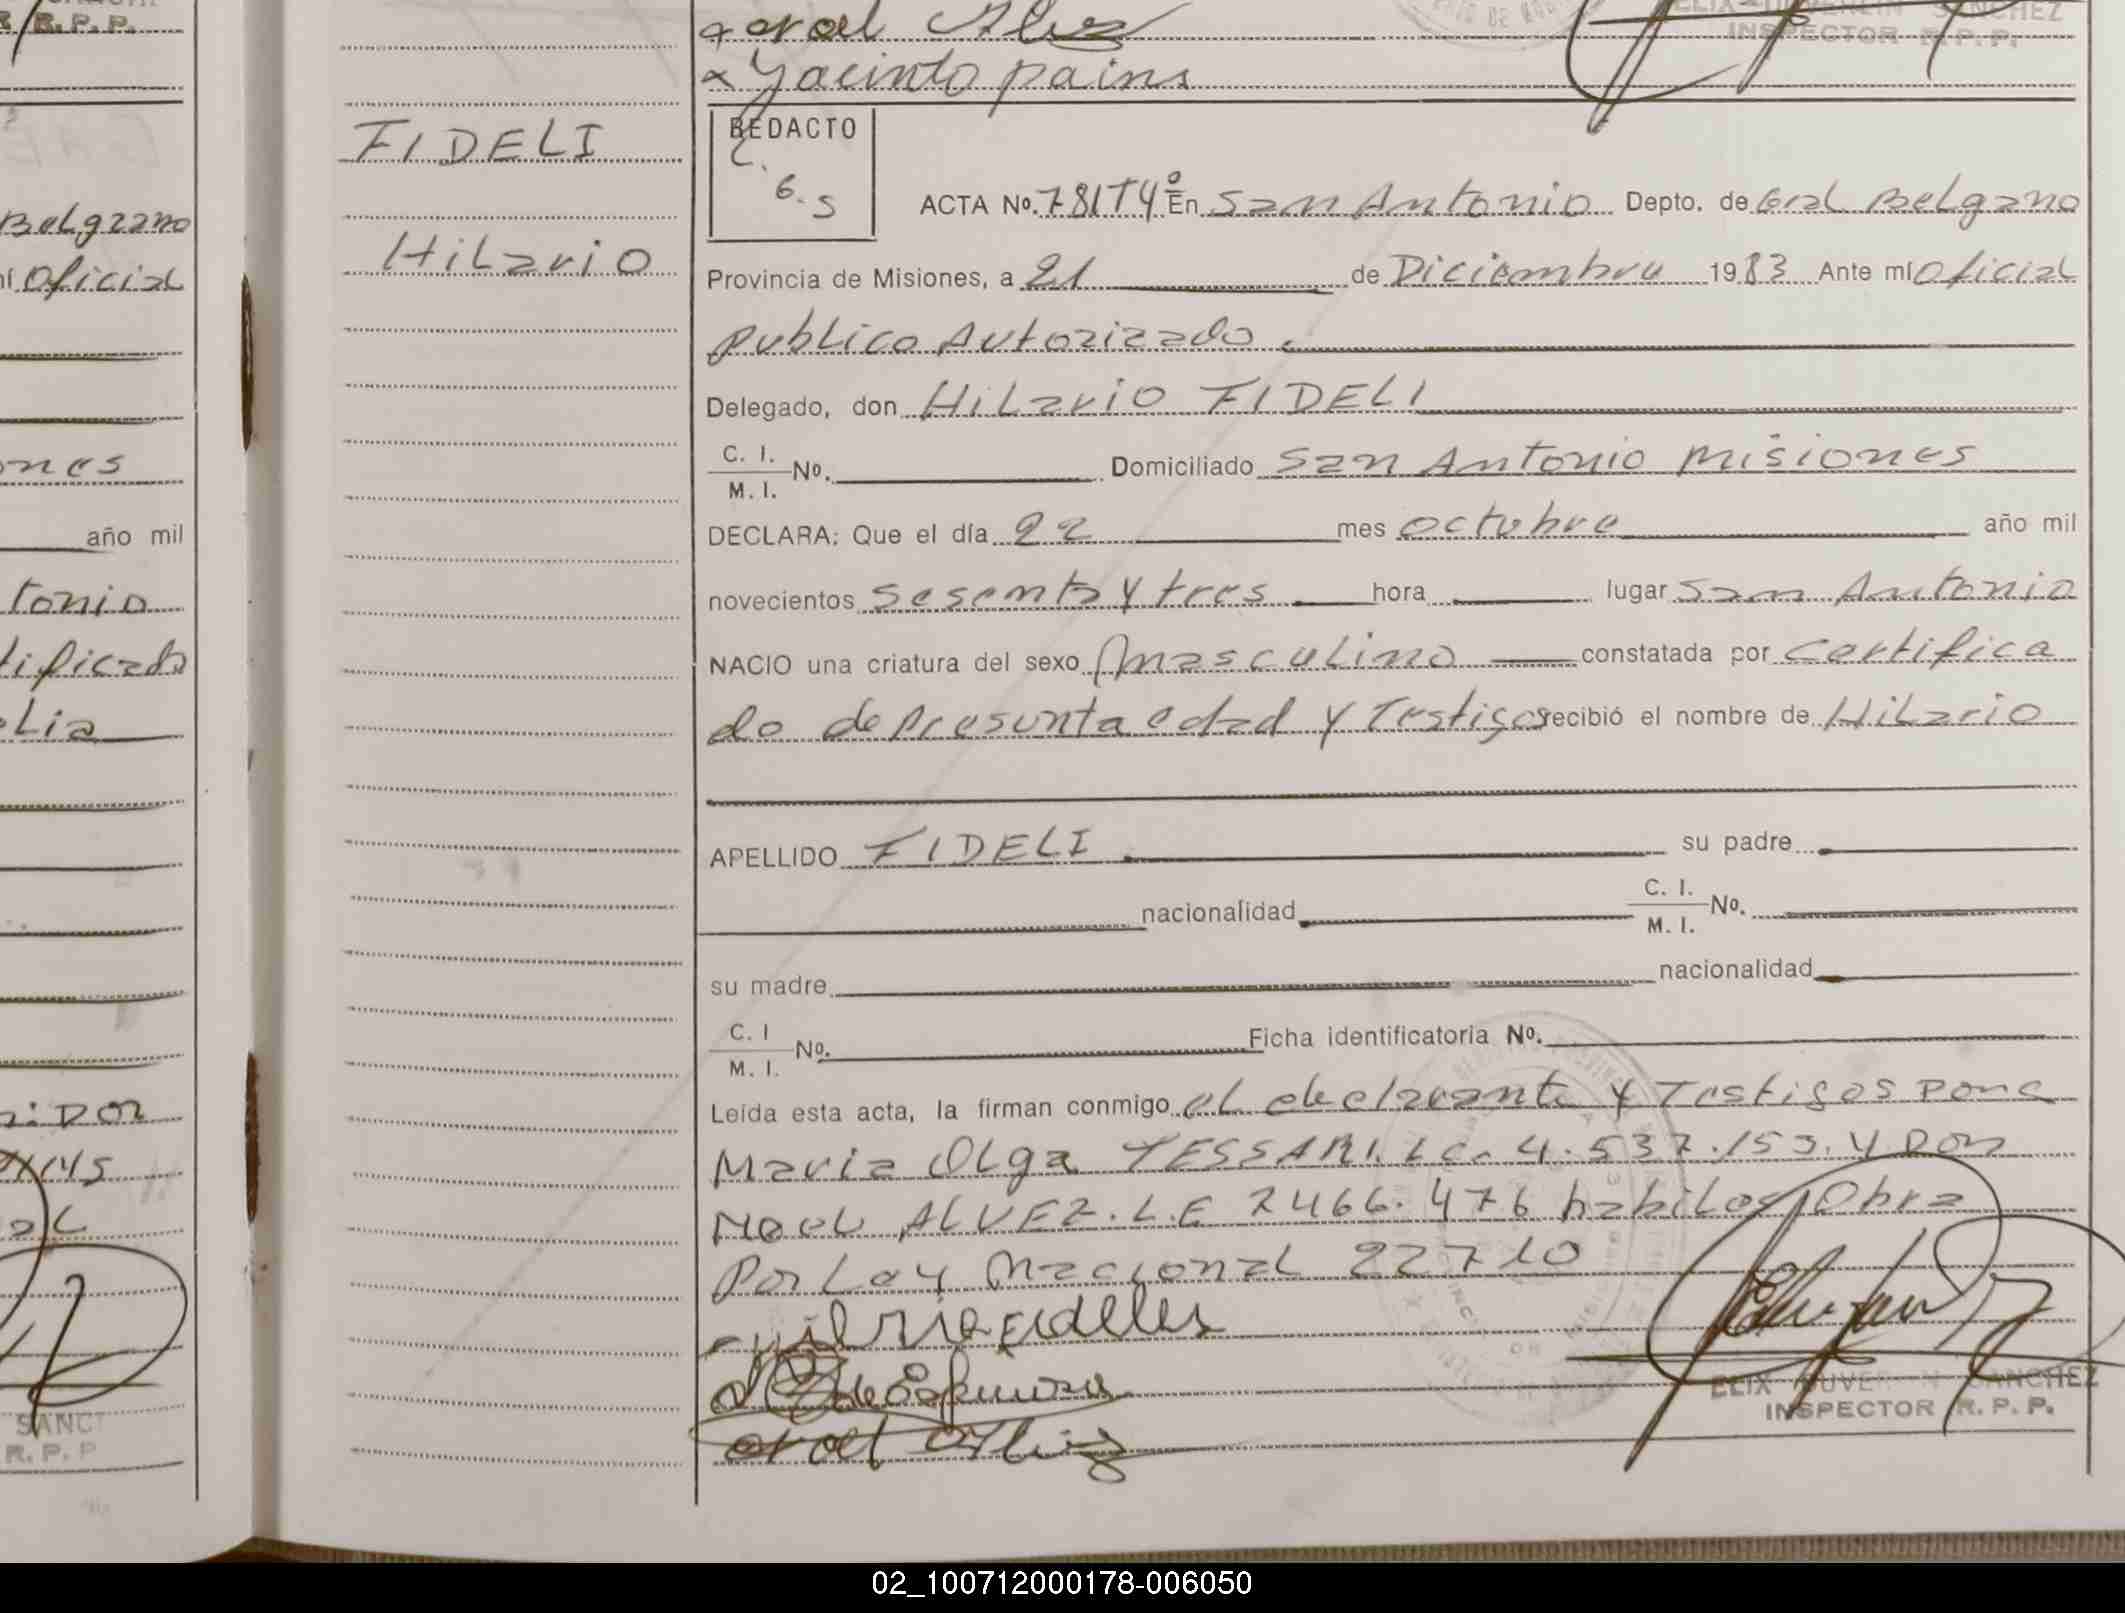 R. P. P.
Belgrano
mí Oficial
ones
año mil
tonio
tificado
elia
SANC
R. P. P
FIDELI
Hilario
Noel Alvez
x Jacinto pains
ELIX SANCHEZ
INSPECTOR R. P. P.
REDACTO
6.5
ACTA Nº. 781 Tº 4º En San Antonio Depto. de Gral Belgrano
Provincia de Misiones, a 21 de Diciembre 1983 Ante mí Oficial
publico Autorizado
Delegado, don Hilario FIDELI
C. I.
M. I. Nº. Domiciliado San Antonio Misiones
DECLARA: Que el día 22 mes octubre año mil
novecientos sesenta y tres hora lugar San Antonio
NACIO una criatura del sexo Masculino constatada por Certifica
do de Presunta edad y Testigos recibió el nombre de Hilario
APELLIDO FIDELI su padre
nacionalidad C. I.
M. I. Nº.
su madre nacionalidad
C. I
M. I. Nº. Ficha identificatoria Nº.
Leída esta acta, la firman conmigo el declarante y Testigos Dona
Maria Olga TESSARI. LC. 4.537.153. y Don
Noel ALVEZ. L.E 7466.476 habiles Obra
Por Ley Nacional 22710
ELIX SANCHEZ
INSPECTOR R. P. P.
02_100712000178-006050